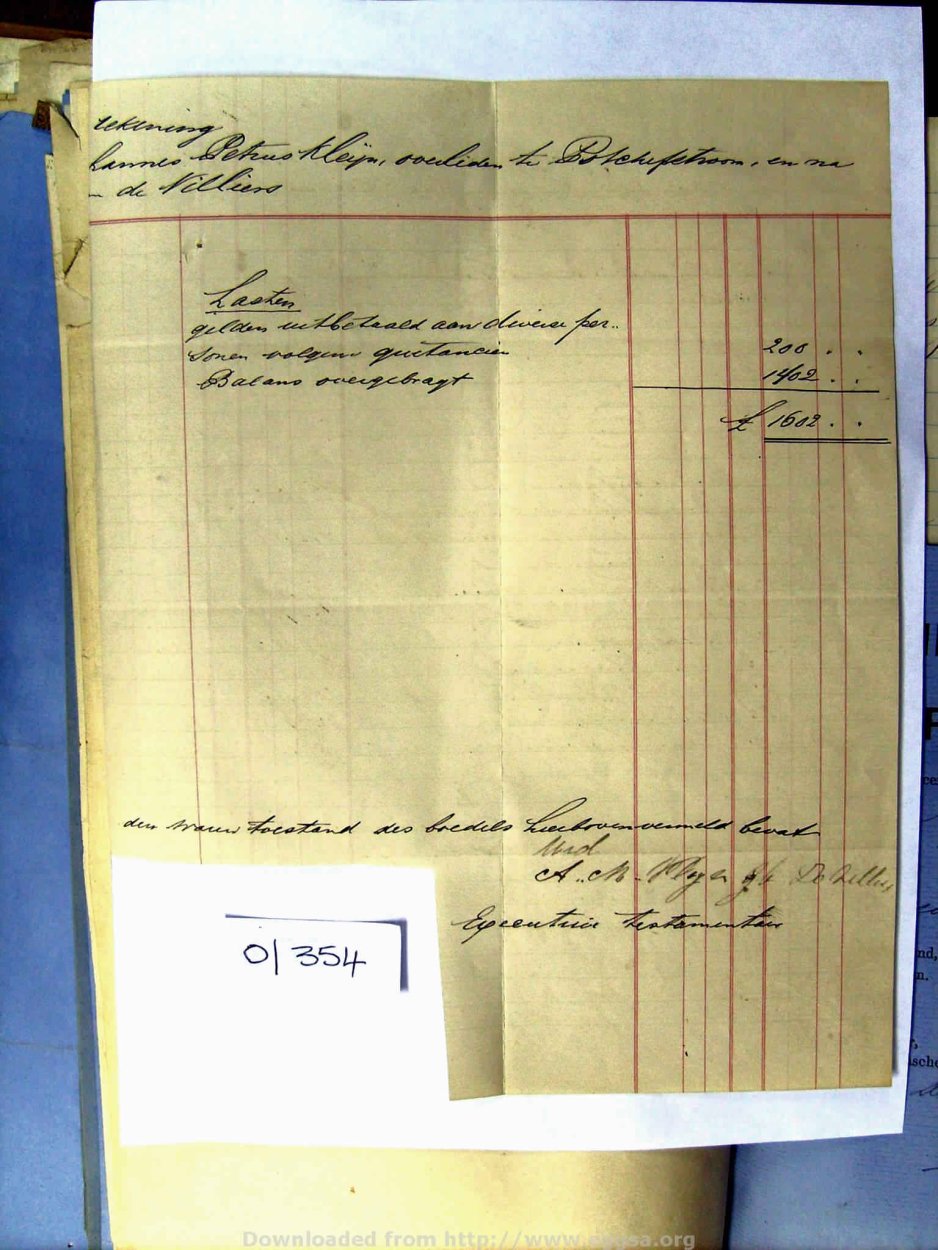 rekening
hannes Petrus Kleijn, overleden te Potchefstroom, en na
de Villiers
Lasten
gelden uitbetaald aan diverse per..
sonen volgens quitancien 200 . .
Balans overgebragt 1402 . .
£ 1602 . .
den waren toestand des boedels hierbovenvermeld bevat
Wed
A. M. Kleyn gb De Villiers
Executrice testamentair
0/354
Downloaded from http://www.eggsa.org